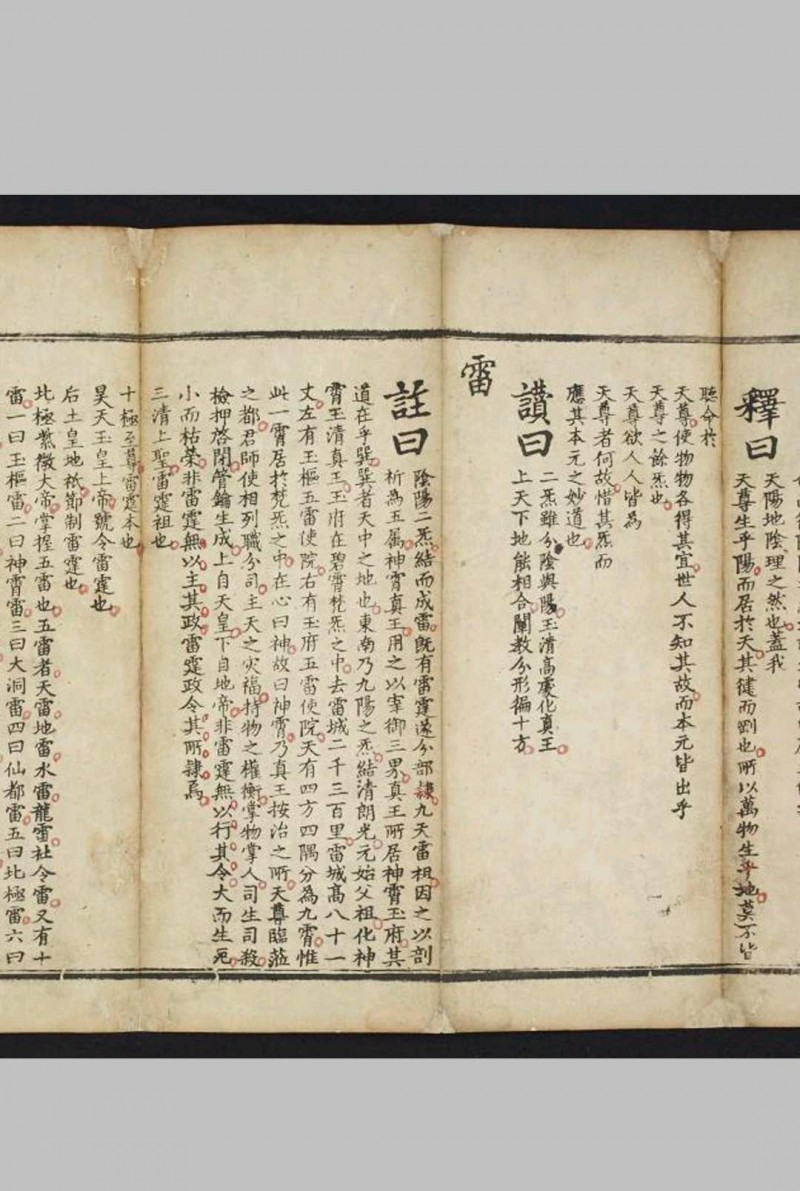 釋曰
天陽地陰理之然也蓋我
天尊生乎陽而居於天其健而剛也所以萬物生乎地莫不皆
聽命於
天尊使物物各得其宜世人不知其故而本元皆出乎
天尊之餘炁也
天尊欲人人皆為
天尊者何故惜其炁而
應其本元之妙道也
讚曰
二炁雖分陰與陽玉清高處化真王
上天下地能相合闡教分形徧十方
雷
註曰
陰陽二炁結而成雷旣有雷霆遂分部隸九天雷祖因之以剖
析為五属神霄真王用之以宰御三界真王所居神霄玉府其
道在乎巽巽者天中之地也東南乃九陽之炁結清朗光元始父祖化神
霄玉清真王王府在碧霄梵炁之中去雷城二千三百里雷城高八十一
丈左有玉樞五雷使院右有玉府五雷使院天有四方四隅分為九霄惟
此一霄居於梵炁之中在心曰神故曰神霄乃真王按治之所天尊臨蒞
之都君師使相列職分司主天之灾福持物之權衡掌物掌人司生司殺
檢押啓閉管鑰生成上自天皇下自地帝非雷霆無以行其令大而生死
小而枯榮非雷霆無以主其政雷霆政令其所隸焉
三清上聖雷霆祖也
十極至尊雷霆本也
昊天玉皇上帝號令雷霆也
后土皇地祇節制雷霆也
北極紫微大帝掌握五雷也五雷者天雷地雷水雷龍雷社令雷又有十
雷一曰玉樞雷二曰神霄雷三曰大洞雷四曰仙都雷五曰北極雷六曰